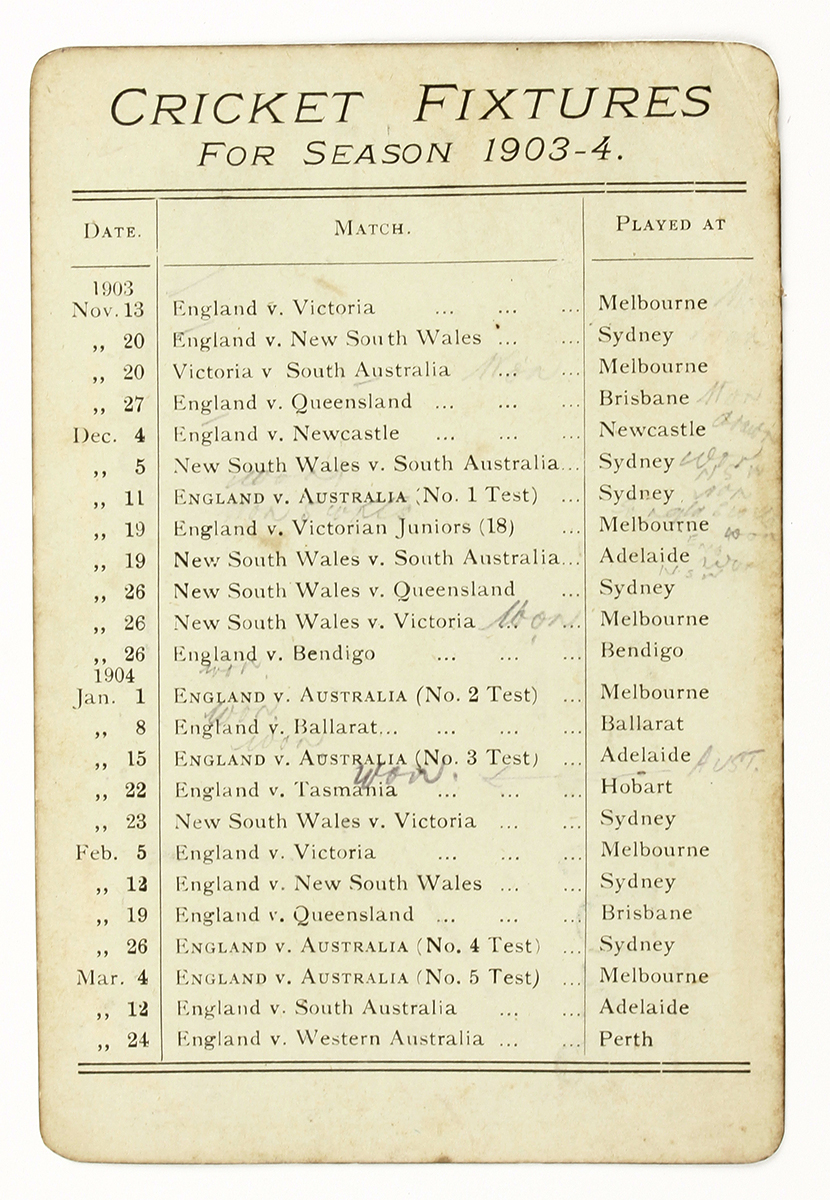 CRICKET FIXTURES
FOR SEASON 1903-4.
DATE. MATCH. PLAYED AT
1903
Nov. 13 England v. Victoria ... ... ... Melbourne
,, 20 England v. New South Wales ... ... Sydney
,, 20 Victoria v South Australia Won ... ... Melbourne
,, 27 England v. Queensland ... ... ... Brisbane Won
Dec. 4 England v. Newcastle ... ... ... Newcastle
,, 5 New South Wales v. South Australia... Sydney Won
N S W
,, 11 ENGLAND v. AUSTRALIA (No. 1 Test) ... Sydney won
,, 19 England v. Victorian Juniors (18) ... Melbourne won
,, 19 New South Wales v. South Australia... Adelaide won
N S W
,, 26 New South Wales v. Queensland ... Sydney
,, 26 New South Wales v. Victoria Won ... ... Melbourne
,, 26 England v. Bendigo ... ... ... Bendigo
won
1904
Jan. 1 ENGLAND v. AUSTRALIA (No. 2 Test) ... Melbourne
won
,, 8 England v. Ballarat... ... ... ... Ballarat
won
,, 15 ENGLAND v. AUSTRALIA (No. 3 Test) ... Adelaide AUST.
won.
,, 22 England v. Tasmania ... ... ... Hobart
,, 23 New South Wales v. Victoria ... ... Sydney
Feb. 5 England v. Victoria ... ... ... Melbourne
,, 12 England v. New South Wales ... ... Sydney
,, 19 England v. Queensland ... ... ... Brisbane
,, 26 ENGLAND v. AUSTRALIA (No. 4 Test) ... Sydney
Mar. 4 ENGLAND v. AUSTRALIA (No. 5 Test) ... Melbourne
,, 12 England v. South Australia ... ... Adelaide
,, 24 England v. Western Australia ... ... Perth